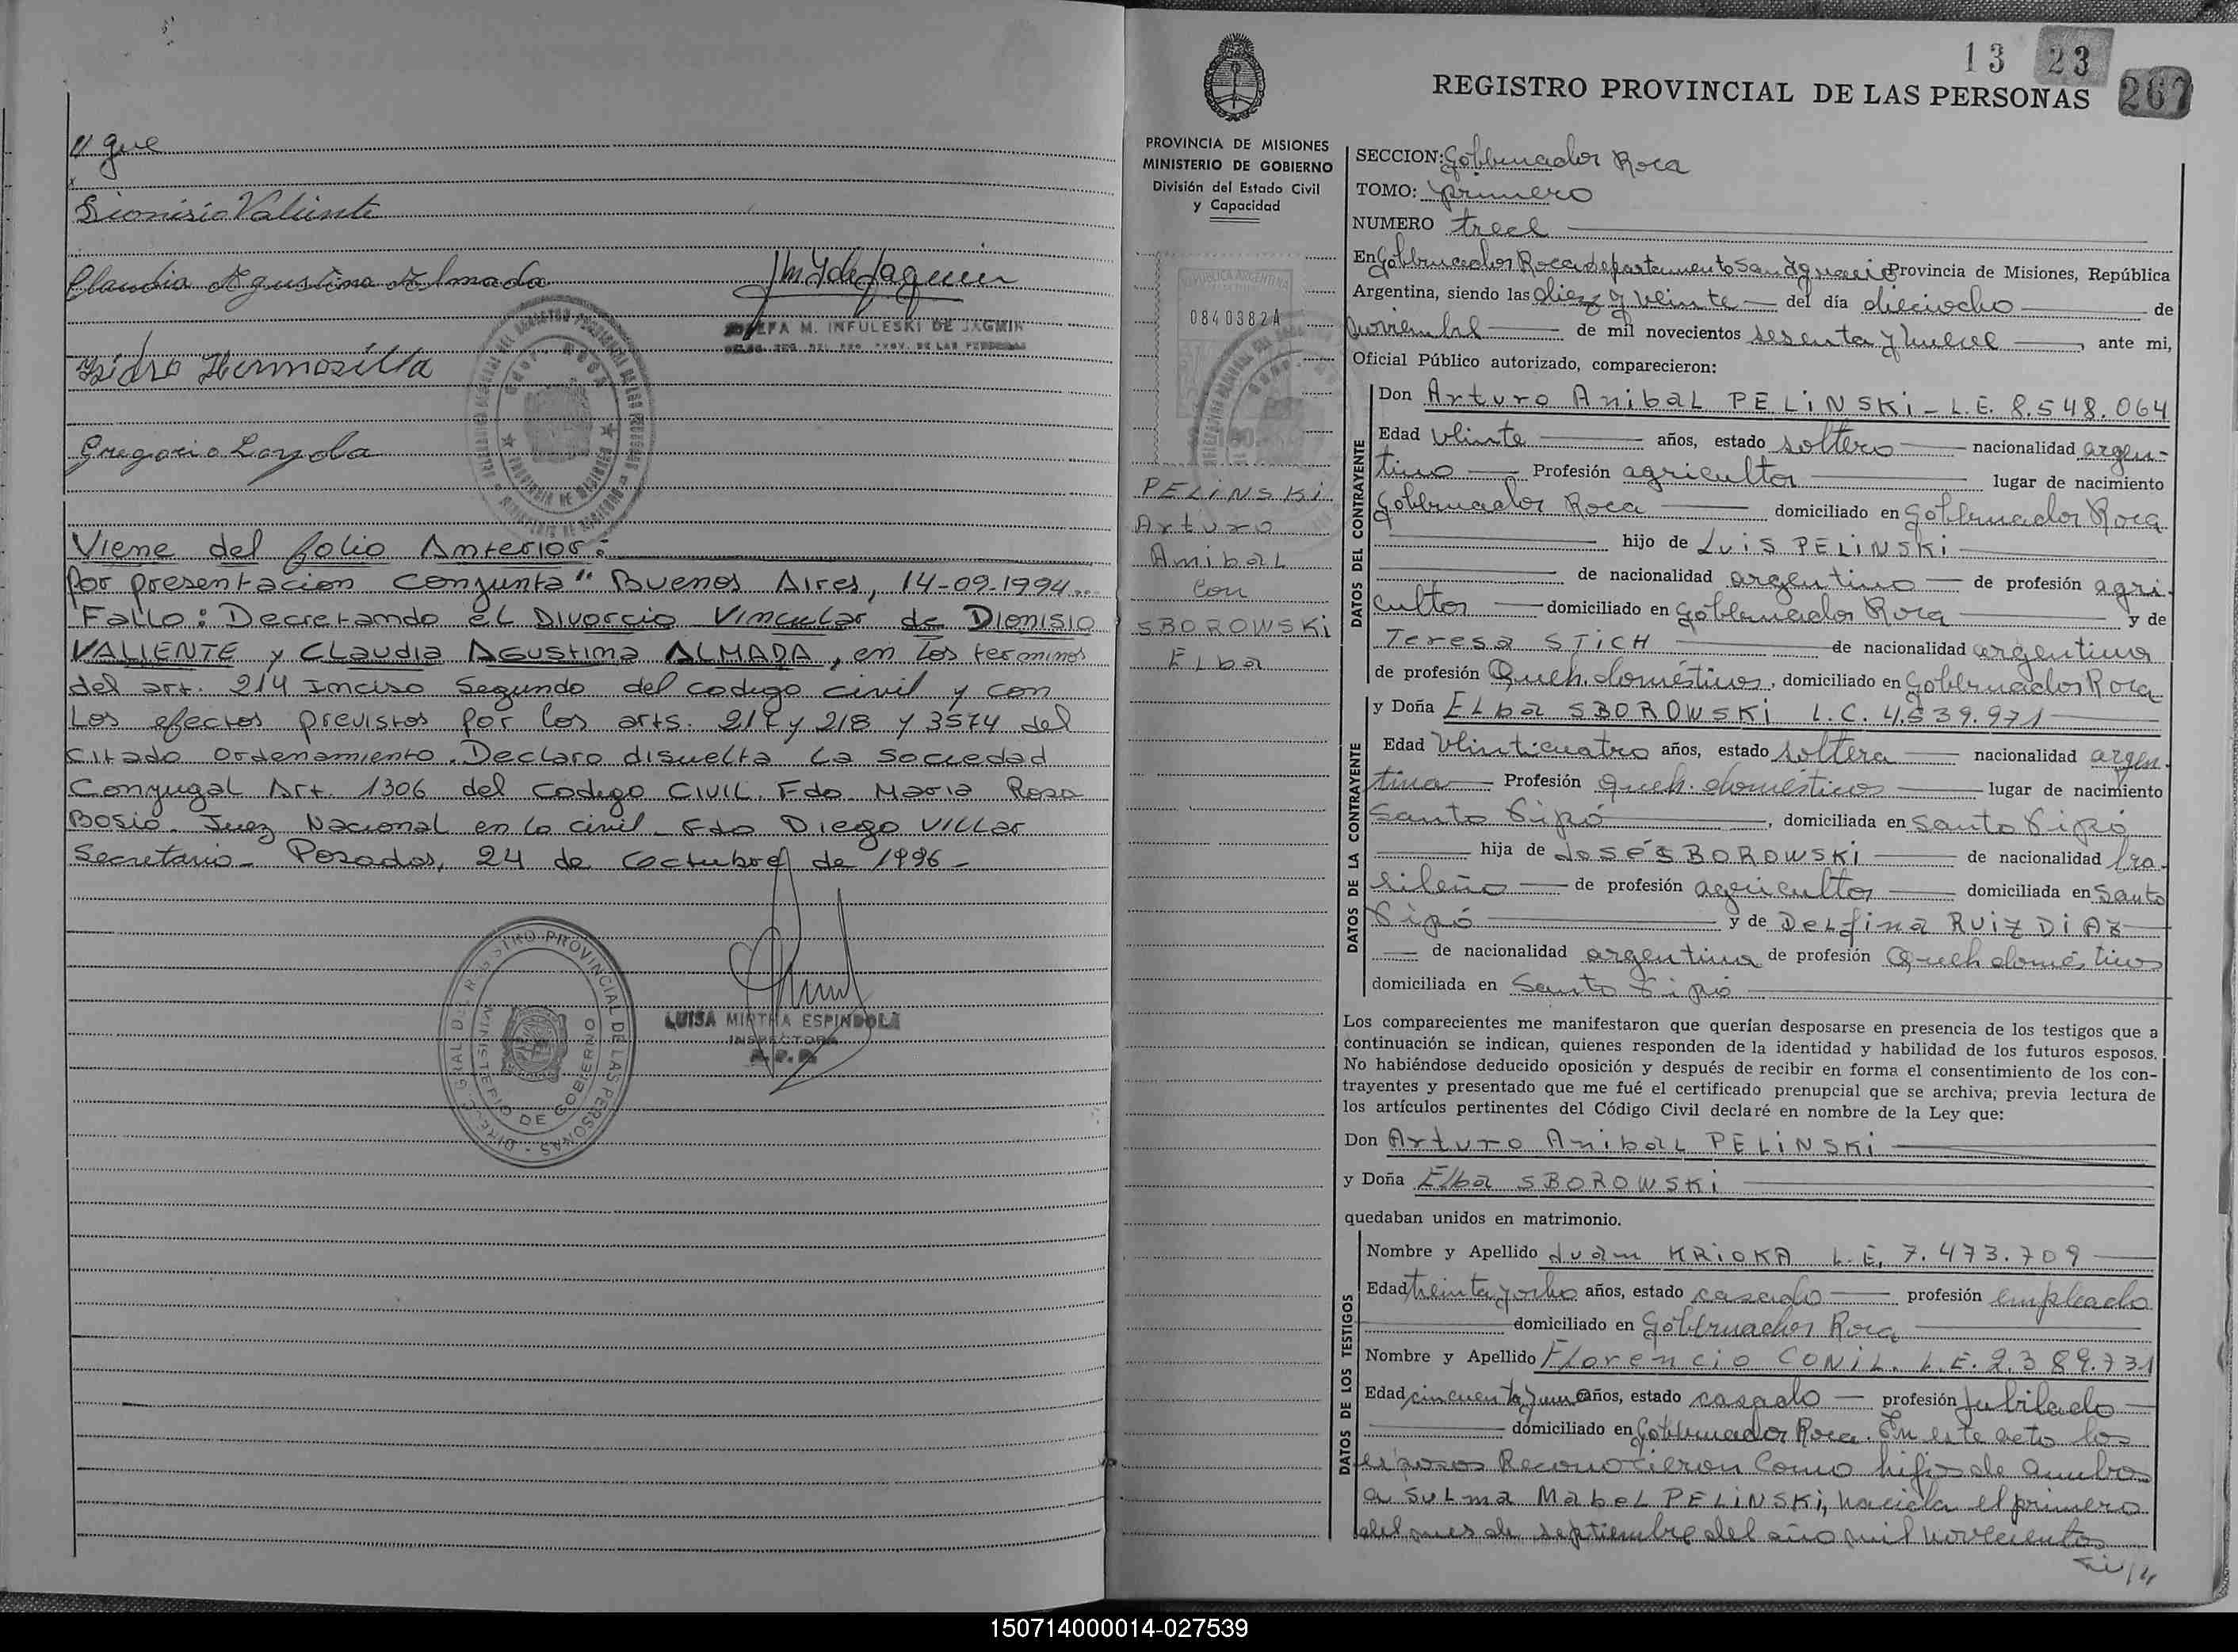 // que
Dionisio Valiente
Claudia Agustina Almada
JOSEFA M. INFULESKI DE JAGMIN
Isidro Hermosilla
Gregorio Loyola
Viene del folio Anterior:
Por presentacion conjunta" Buenos Aires, 14-09-1994...
Fallo: Decretando el Divorcio Vincular de Dionisio
VALIENTE y CLaudia AGustina ALMADA, en los terminos
del art. 214 Inciso Segundo del codigo civil y con
Los efectos previstos por los arts. 217 y 218 y 3574 del
Citado ordenamiento. Declaro disuelta la Sociedad
Conyugal Art. 1306 del Codigo CIVIL. Fdo. Maria Rosa
Bosio. Juez Nacional en lo civil - Fdo Diego VILLar
Secretario - Posadas, 24 de Octubre de 1996 -
DIREC. GRAL DEL REGISTRO PROVINCIAL DE LAS PERSONAS
MINISTERIO DE GOBIERNO
LUISA MIRTHA ESPINDOLA
INSPECTORA
13 23
267
REGISTRO PROVINCIAL DE LAS PERSONAS
PROVINCIA DE MISIONES
MINISTERIO DE GOBIERNO
División del Estado Civil
y Capacidad
REPUBLICA ARGENTINA
0840382A
PELINSKI
Arturo
Anibal
Con
SBOROWSKI
Elba
SECCION: Gobernador Roca
TOMO: primero
NUMERO trece
En Gobernador Roca departamento San Ignacio Provincia de Misiones, República
Argentina, siendo las diez y veinte del día dieciocho de
noviembre de mil novecientos sesenta y nueve, ante mi,
Oficial Público autorizado, comparecieron:
DATOS DEL CONTRAYENTE
Don Arturo Anibal PELINSKI - L.E. 8.548.064
Edad veinte años, estado soltero nacionalidad argen-
tino Profesión agricultor lugar de nacimiento
Gobernador Roca domiciliado en Gobernador Roca
hijo de Luis PELINSKI
de nacionalidad argentino de profesión agri-
cultor domiciliado en Gobernador Roca y de
Teresa STICH de nacionalidad argentina
de profesión Queh. domésticos, domiciliado en Gobernador Roca
DATOS DE LA CONTRAYENTE
y Doña Elba SBOROWSKI L.C. 4.539.971
Edad veinticuatro años, estado soltera nacionalidad argen-
tina Profesión Queh. domésticos lugar de nacimiento
Santo Pipó, domiciliada en Santo Pipó
hija de José SBOROWSKI de nacionalidad bra-
sileño de profesión agricultor domiciliada en Santo
Pipó y de Delfina RUIZ DIAZ
de nacionalidad argentina de profesión Queh domésticos
domiciliada en Santo Pipó
Los comparecientes me manifestaron que querían desposarse en presencia de los testigos que a
continuación se indican, quienes responden de la identidad y habilidad de los futuros esposos.
No habiéndose deducido oposición y después de recibir en forma el consentimiento de los con-
trayentes y presentado que me fué el certificado prenupcial que se archiva; previa lectura de
los artículos pertinentes del Código Civil declaré en nombre de la Ley que:
Don Arturo Anibal PELINSKI
y Doña Elba SBOROWSKI
quedaban unidos en matrimonio.
DATOS DE LOS TESTIGOS
Nombre y Apellido Juan KRIOKA L.E. 7.473.709
Edad treinta y ocho años, estado casado profesión empleado
domiciliado en Gobernador Roca
Nombre y Apellido Florencio CONIL. L.E. 2.389.731
Edad cincuenta y un años, estado casado profesión Jubilado
domiciliado en Gobernador Roca. En este acto los
esposos Reconocieron Como hijos de ambos
a Sulma Mabel PELINSKI, nacida el primero
del mes de septiembre del año mil novecientos
150714000014-027539